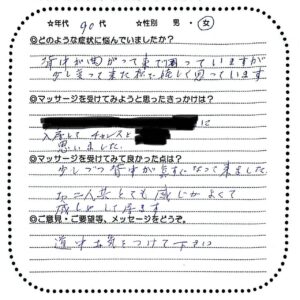 ☆年代 90代 ☆性別 男・女
◎どのような症状に悩んでいましたか？
背中が曲がって来て困っていますが
少し走って来た私で 困っています
◎マッサージを受けてみようと思ったきっかけは？
に
入居して チャンスと
思いました。
◎マッサージを受けてみて良かった点は？
少しづつ背中が真すぐになって来ました。
お二人共とても感じがよくて
感しゃして居ます
◎ご意見・ご要望等、メッセージをどうぞ。
道中お気をつけて下さい